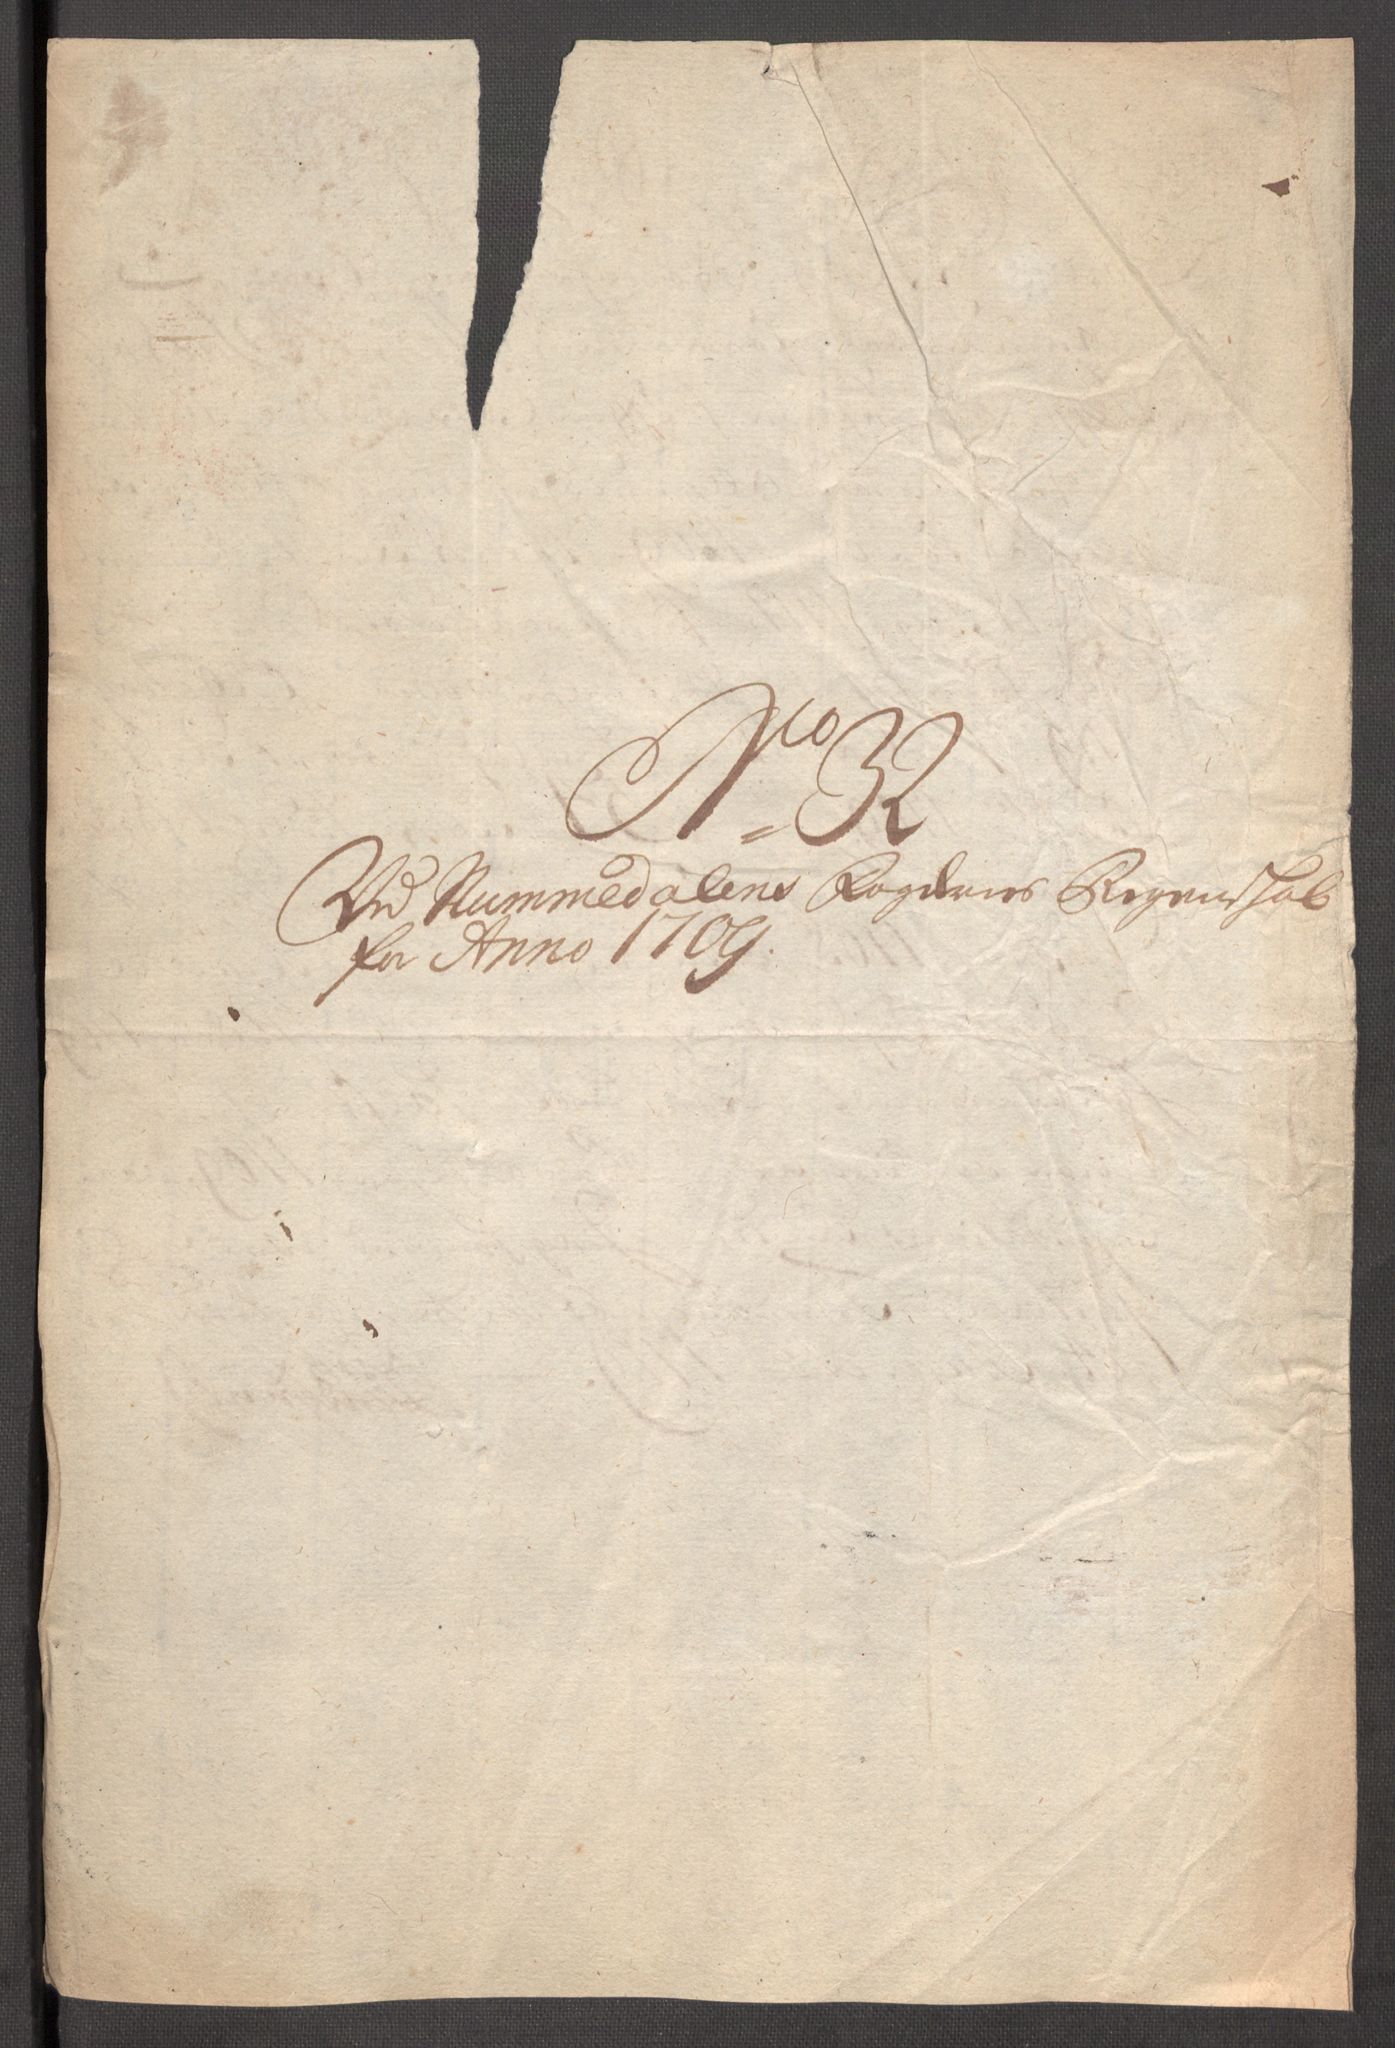 No 32
Ved Nummedalens Fogderies Regenschab
for Anno 1709.